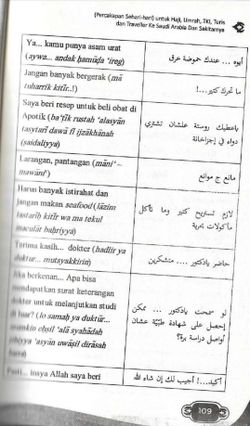 (Percakapan Sehari-hari) untuk Haji, Umrah, TKI, Turis
dan Traveller Ke Saudi Arabia Dan Sekitarnya
Ya... kamu punya asam urat
(aywa... andak ḥamūḍa 'ireg)
أيوه ... عندك حموضة عرق
Jangan banyak bergerak (mā
tuḥarrik kitīr..!)
ما تحرك كتير...!
Saya beri resep untuk beli obat di
Apotik (ba'ṭīk rustah 'alasyān
tasytarī dawā fī ijzākhānah
(ṣaidaliyya)
باعطيك روستة علشان تشتري
دواء في إجزاخانة
Larangan, pantangan (māni' –
mawāni')
مانع ج موانع
Harus banyak istirahat dan
jangan makan seafood (lāzim
tastarīḥ kitīr wa ma tekul
maculāt baḥriyya)
لازم تستريح كتير وما تأكل
مأكولات بحرية
Terima kasih... dokter (ḥadlir ya
duktur... mutsyakkirin)
حاضر يادكتور ... متشكرين
Jika berkenan... Apa bisa
mendapatkan surat keterangan
dokter untuk melanjutkan studi
di luar? (lo samaḥ ya duktūr...
mumkin eḥṣil 'alā syahādah
ṭibbiyya 'asyān uwāṣil dirāsah
barra)
لو سمحت يادكتور ... ممكن
إحصل على شهادة طبيّة عشان
أواصل دراسة برة؟
Pasti... insya Allah saya beri
أكيد...! أجيب لك إن شاء الله
109